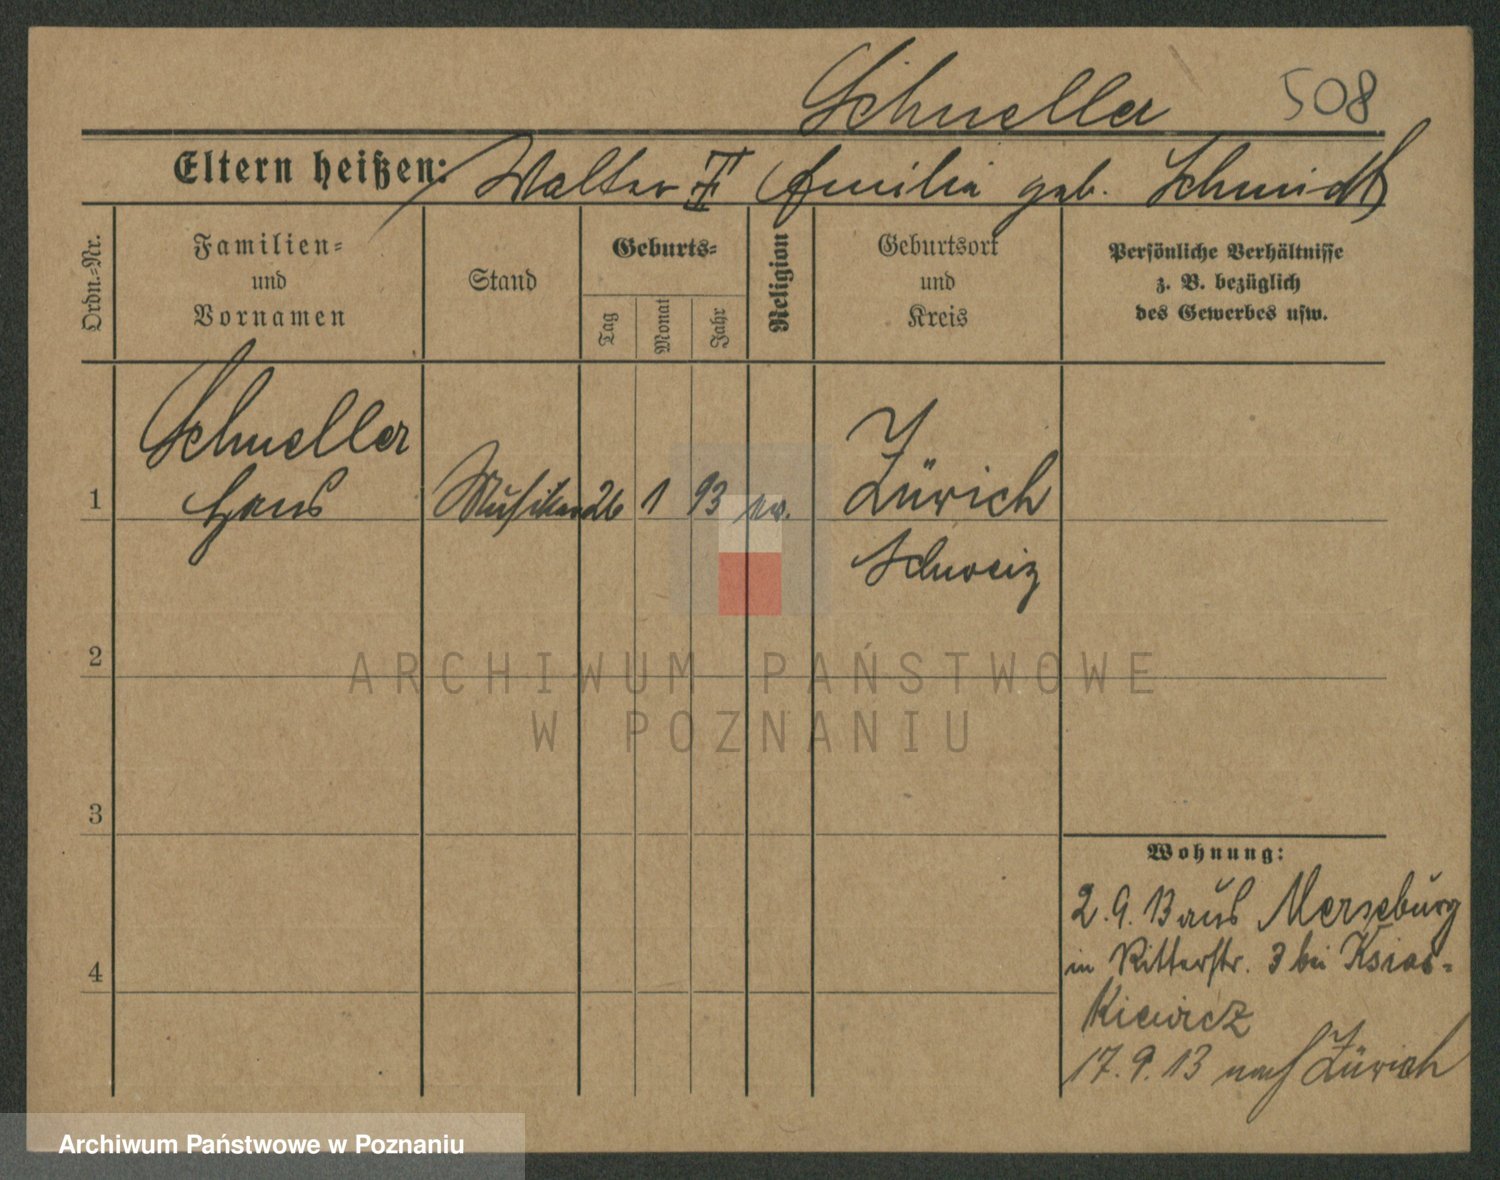 Schneller 508
Eltern heißen: Walter u. Emilia geb. Schmidt
Ordn.-Nr.
Familien- und Vornamen
Stand
Geburts-
Tag
Monat
Jahr
Religion
Geburtsort und Kreis
Persönliche Verhältnisse
z. B. bezüglich
des Gewerbes usw.
Schneller
1 Hans Musiker 26 1 93 ev. Zürich
Schweiz
2
3
4
Wohnung:
2.9.13 aus Merseburg
in Ritterstr. 3 bei Ksias-
kiewicz
17.9.13 nach Zürich
ARCHIWUM PAŃSTWOWE
W POZNANIU
Archiwum Państwowe w Poznaniu